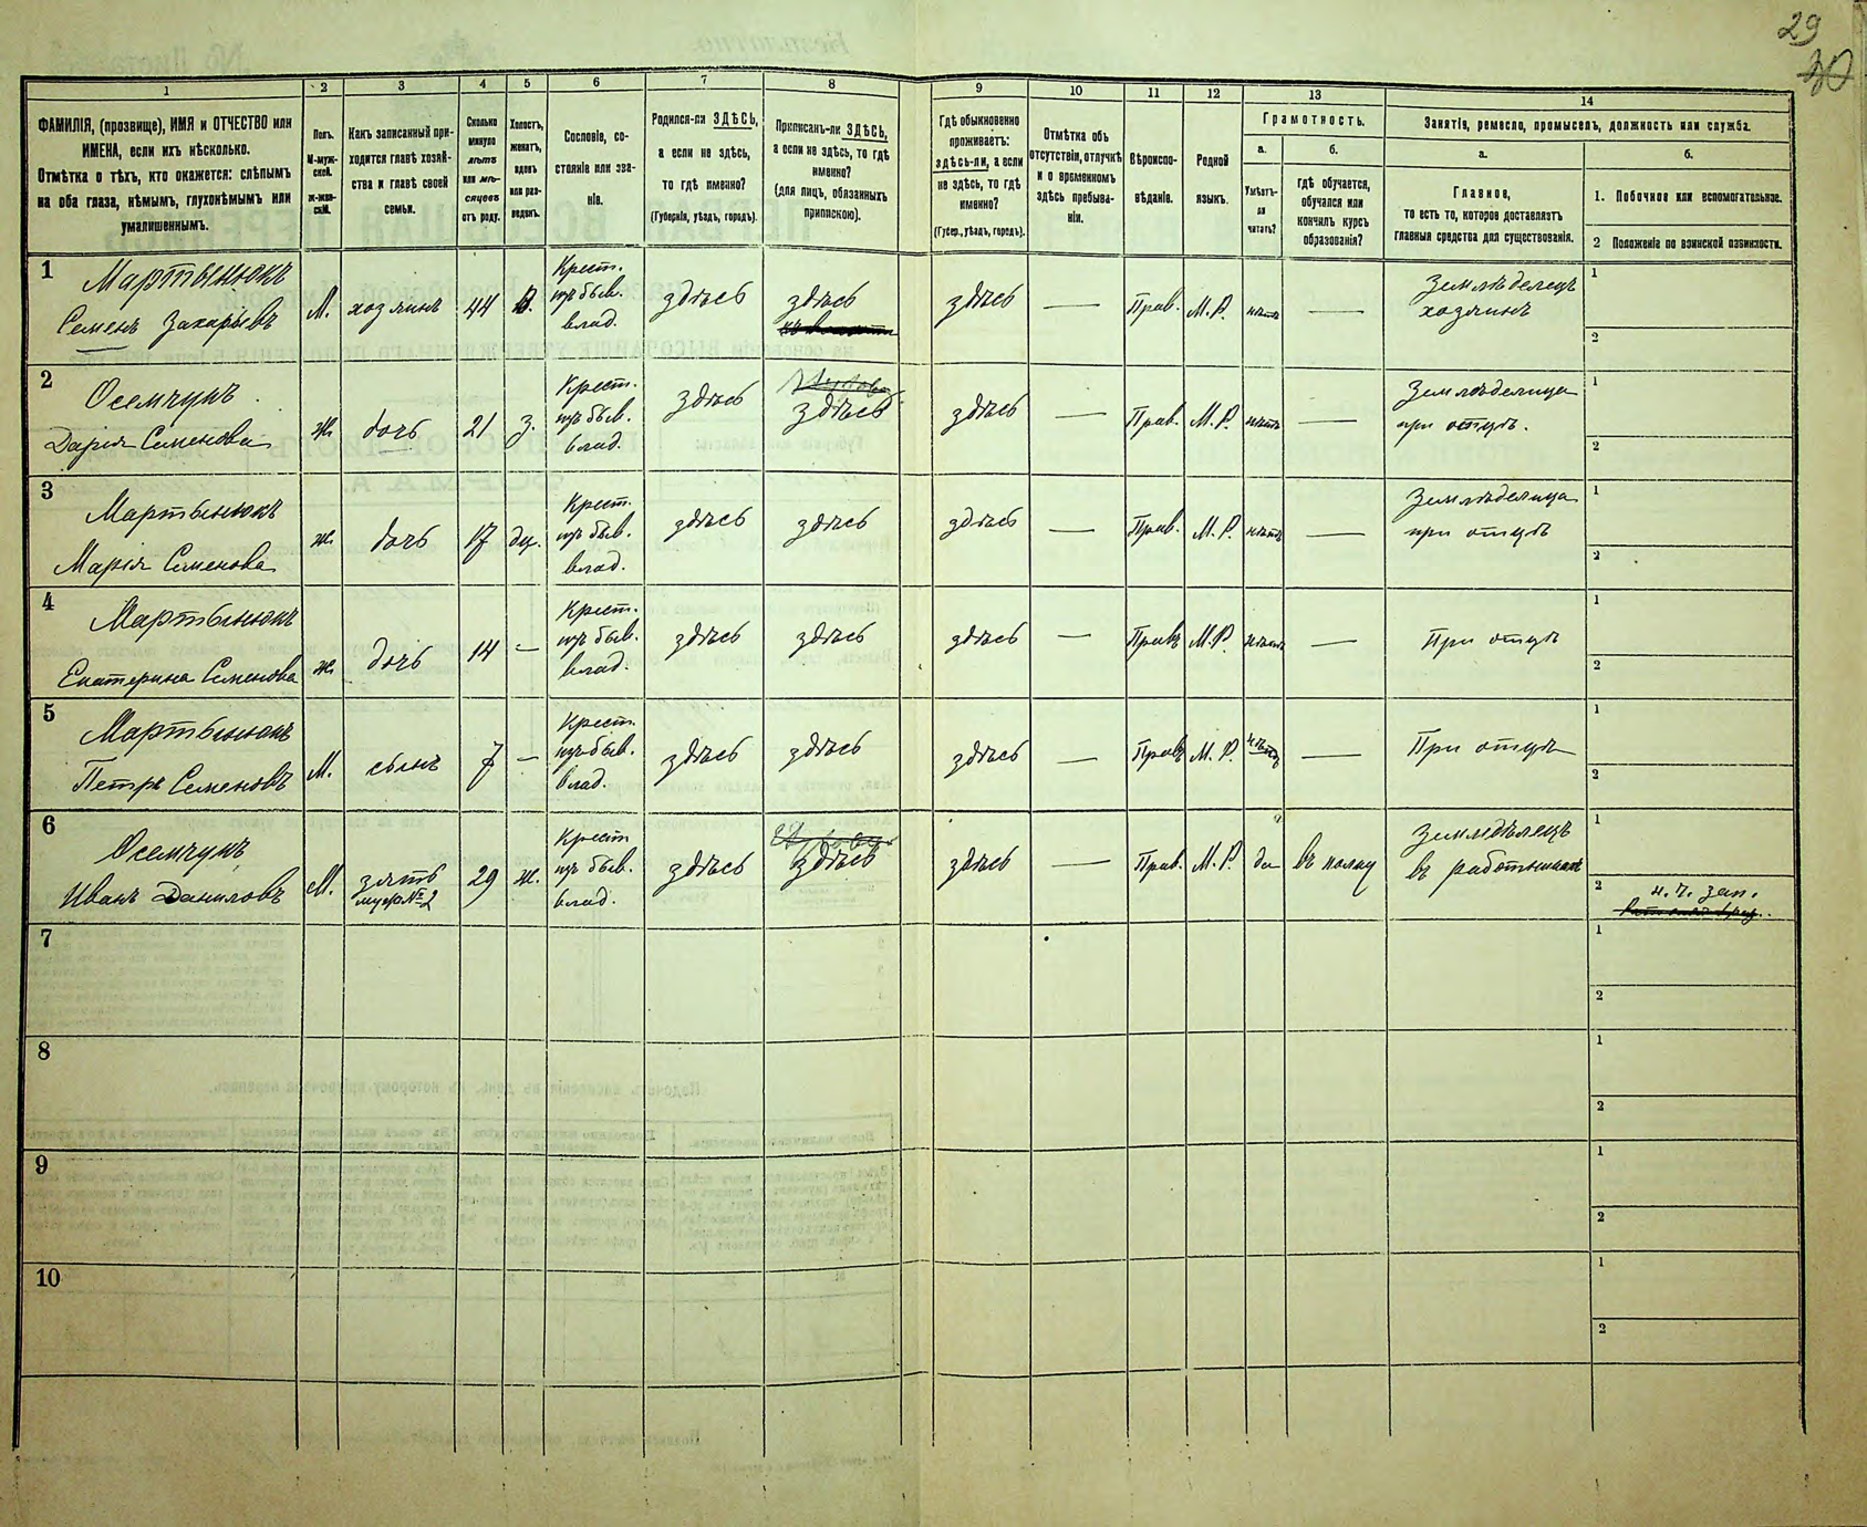 29
30
1
2
3
4
5
6
7
8
9
10
11
12
13
14
ФАМИЛІЯ, (прозвище), ИМЯ и ОТЧЕСТВО или
ИМЕНА, если ихъ нѣсколько.
Отмѣтка о тѣхъ, кто окажется: слѣпымъ
на оба глаза, нѣмымъ, глухонѣмымъ или
умалишеннымъ.
Полъ.
М-муж-
ской.
ж-жен-
скій.
Какъ записанный при-
ходится главѣ хозяй-
ства и главѣ своей
семьи.
Сколько
минуло
лѣтъ
или мѣ-
сяцевъ
отъ роду.
Холостъ,
женатъ,
вдовъ
или раз-
веденъ.
Сословіе, со-
стояніе или зва-
ніе.
Родился-ли ЗДѢСЬ,
а если не здѣсь,
то гдѣ именно?
(Губернія, уѣздъ, городъ).
Приписанъ-ли ЗДѢСЬ,
а если не здѣсь, то гдѣ
именно?
(для лицъ, обязанныхъ
припискою).
Гдѣ обыкновенно
проживаетъ:
здѣсь-ли, а если
не здѣсь, то гдѣ
именно?
(Губер., уѣздъ, городъ).
Отмѣтка объ
отсутствіи, отлучкѣ
и о временномъ
здѣсь пребыва-
ніи.
Вѣроиспо-
вѣданіе.
Родной
языкъ.
Грамотность.
а.
б.
Умѣетъ-
ли
читать?
гдѣ обучается,
обучался или
кончилъ курсъ
образованія?
Занятія, ремесло, промыселъ, должность или служба.
а.
б.
Главное,
то есть то, которое доставляетъ
главныя средства для существованія.
1. Побочное или вспомогательное.
2 Положеніе по воинской повинности.
1
Мартынюкъ
Семенъ Захарьевъ
М.
хозяинъ
44
В.
Крест.
изъ быв.
влад.
здѣсь
здѣсь
здѣсь
—
Прав.
М. Р.
нѣтъ
—
Земледелецъ
хозяинъ
1
2
2
Осемчукъ
Дарія Семенова
ж
дочь
21
з.
Крест.
изъ быв.
влад.
здѣсь
здѣсь
здѣсь
—
Прав.
М. Р.
нѣтъ
—
Земледелица
при отцѣ.
1
2
3
Мартынюкъ
Марія Семенова
ж
дочь
17
дѣ.
Крест.
изъ быв.
влад.
здѣсь
здѣсь
здѣсь
—
Прав.
М. Р.
нѣтъ
—
Земледелица
при отцѣ
1
2
4
Мартынюкъ
Екатерина Семенова
ж
дочь
14
—
Крест.
изъ быв.
влад.
здѣсь
здѣсь
здѣсь
—
Прав.
М. Р.
нѣтъ
—
При отцѣ
1
2
5
Мартынюкъ
Петръ Семеновъ
М.
сынъ
7
—
Крест.
изъ быв.
влад.
здѣсь
здѣсь
здѣсь
—
Прав.
М. Р.
нѣтъ
—
При отцѣ
1
2
6
Осемчукъ
Иванъ Даниловъ
М.
зять
мужъ №2
29
ж.
Крест
изъ быв.
влад.
здѣсь
здѣсь
здѣсь
—
Прав.
М. Р.
да
въ полку
Земледѣлецъ
въ работникахъ
1
2 н. ч. зап.
7
1
2
8
1
2
9
1
2
10
1
2